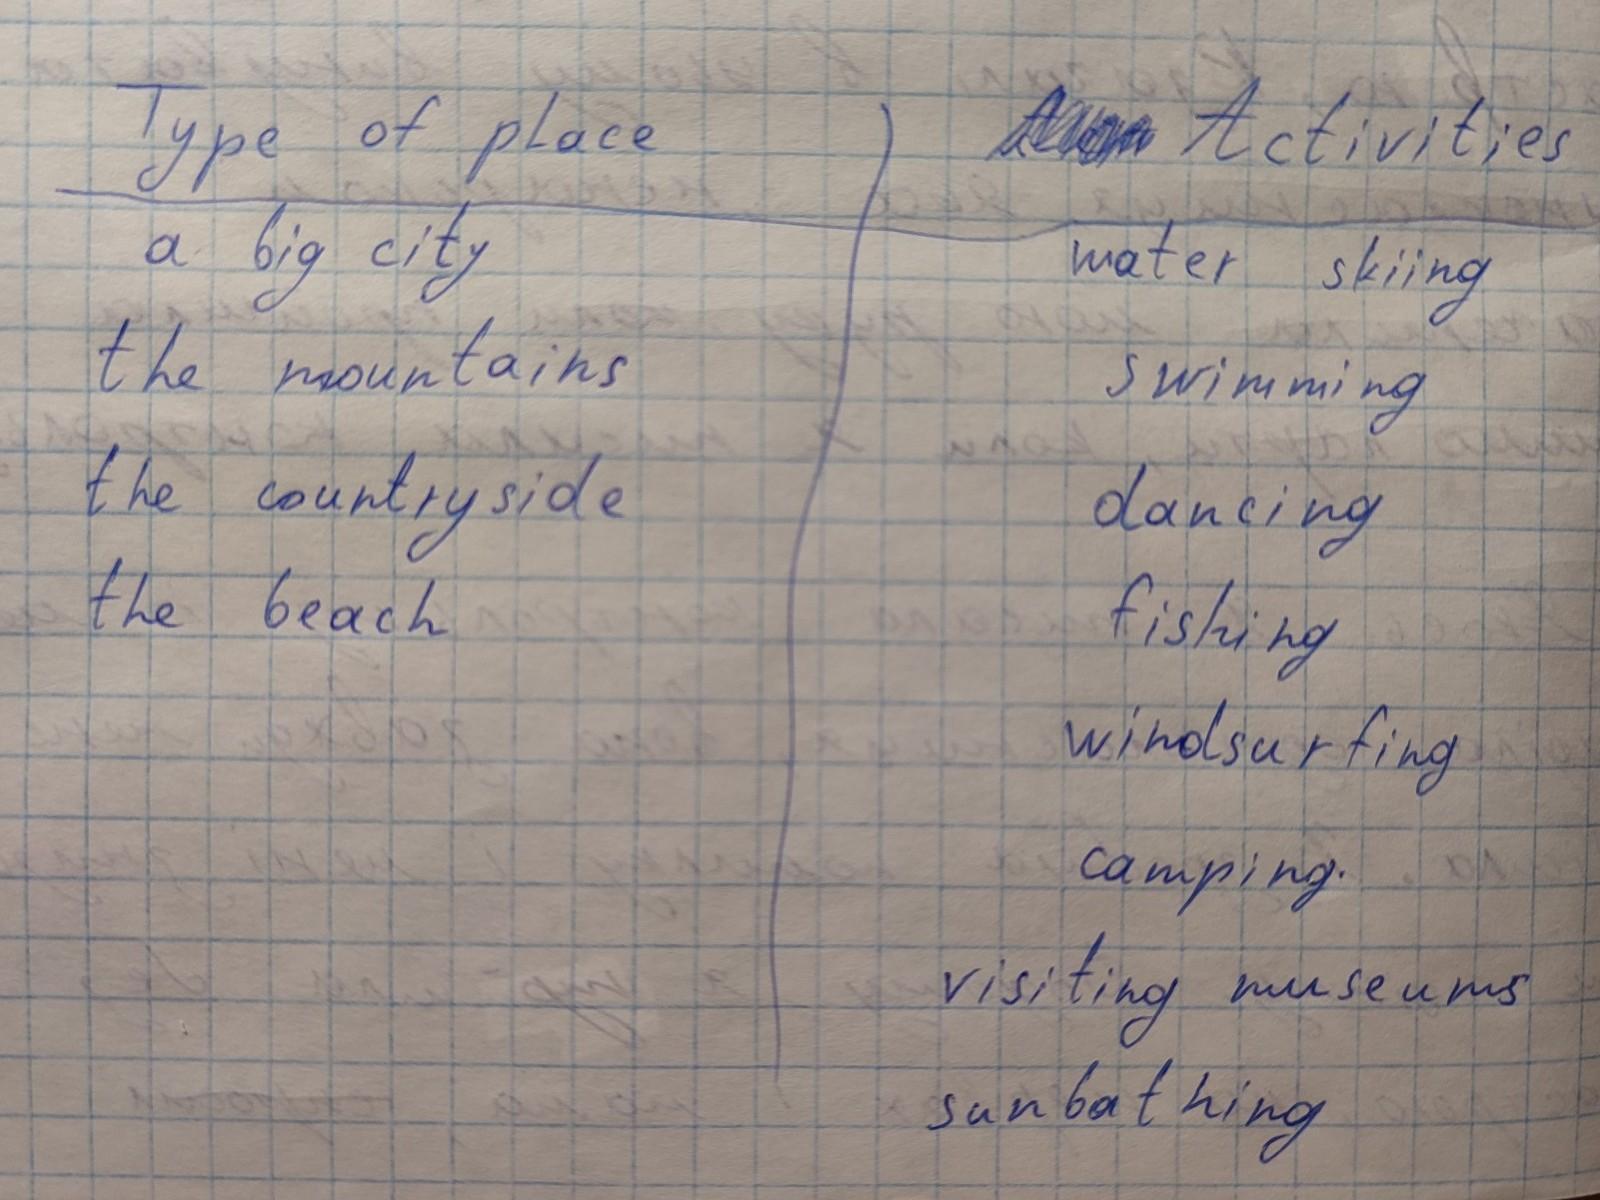 Type of place Activities
a big city water skiing
the mountains swimming
the countryside dancing
the beach fishing
windsurfing
camping.
visiting museums
sunbathing